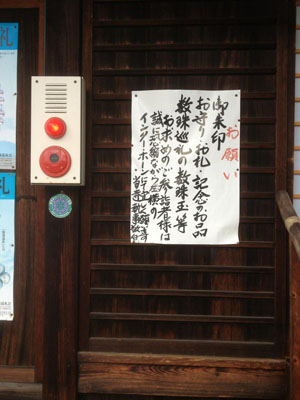 お願い
御朱印
お守り・お札・記念のお品
数珠巡礼の数珠玉等
お求めのご参詣者様は
誠に恐 ながら左横の
インターホーン
札
札